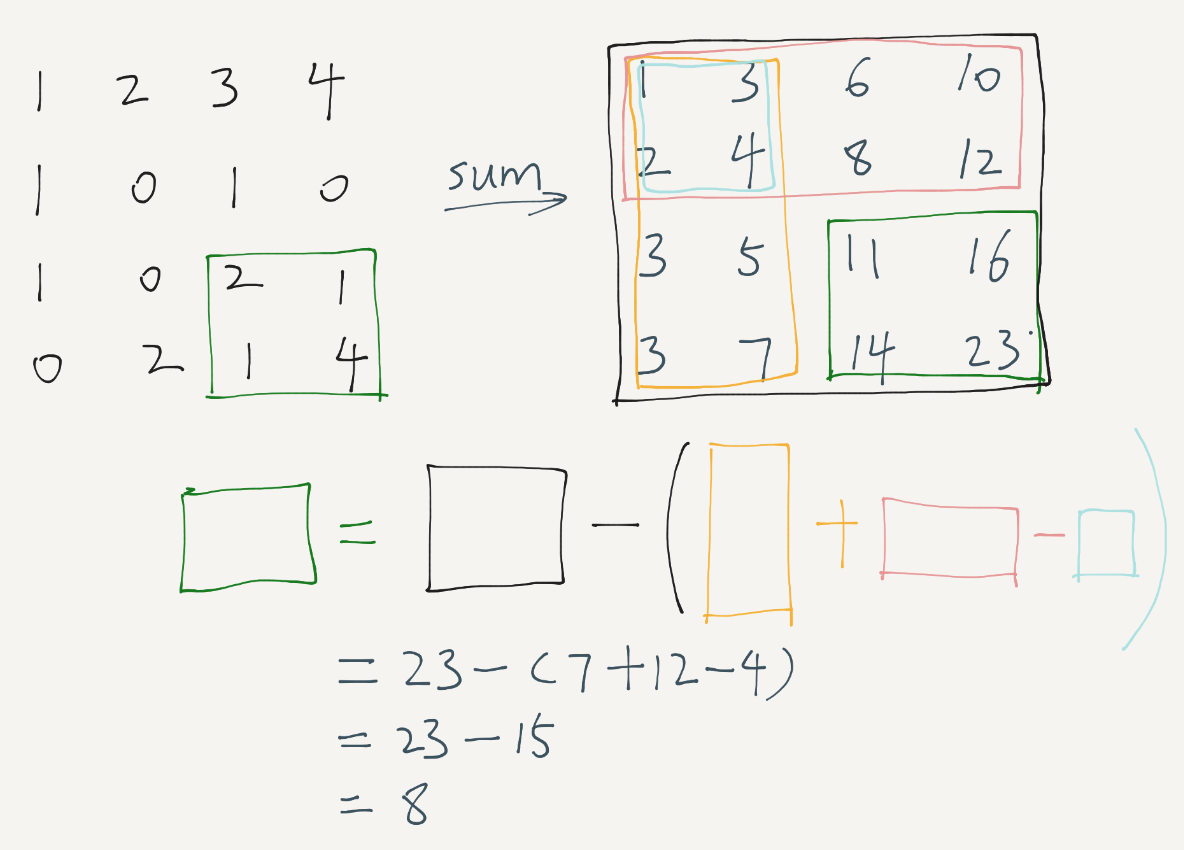 1 2 3 4
1 0 1 0
1 0 2 1
0 2 1 4
sum
1 3 6 10
2 4 8 12
3 5 11 16
3 7 14 23
= - ( + - )
= 23 - (7 + 12 - 4)
= 23 - 15
= 8